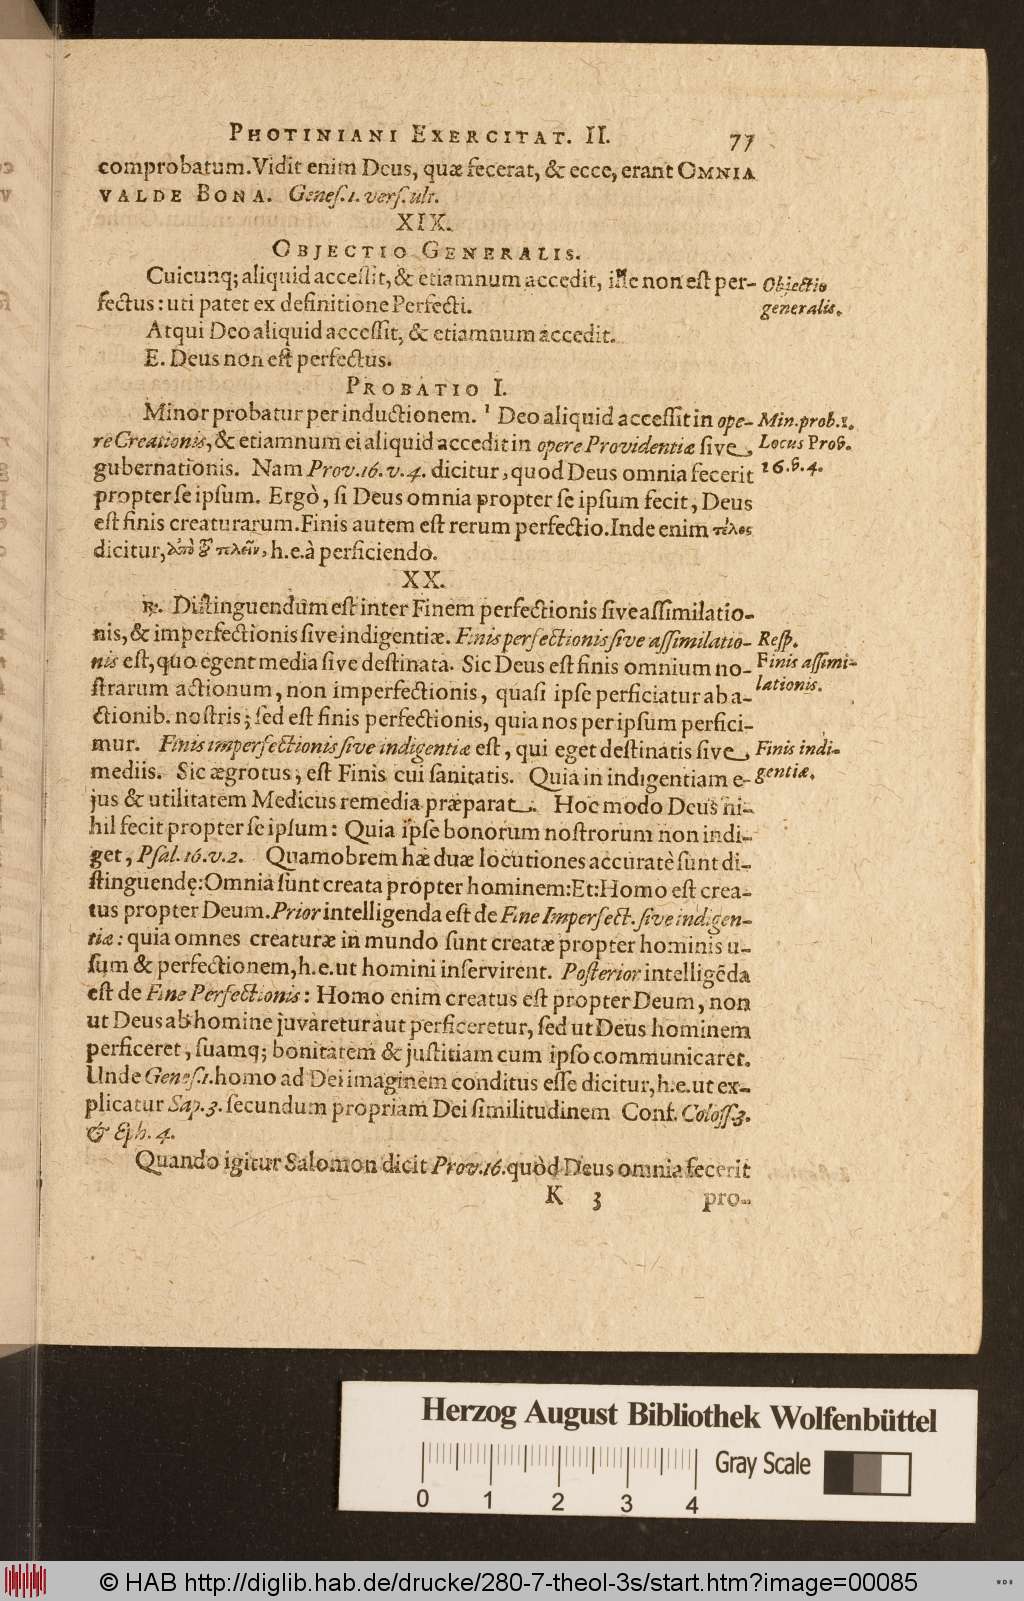 PHOTINIANI EXERCITAT. II. 77
comprobatum. Vidit enim Deus, quæ fecerat, & ecce, erant OMNIA
VALDE BONA. Geneſ. 1. verſ. ult.
XIX.
OBJECTIO GENERALIS.
Cuicunq; aliquid acceſſit, & etiamnum accedit, ille non eſt per-
fectus: uti patet ex definitione Perfecti.
Objectio
generalis.
Atqui Deo aliquid acceſſit, & etiamnum accedit.
E. Deus non eſt perfectus.
PROBATIO I.
Minor probatur per inductionem. 1 Deo aliquid acceſſit in ope-
re Creationis, & etiamnum ei aliquid accedit in opere Providentiæ ſive
gubernationis. Nam Prov. 16. v. 4. dicitur, quod Deus omnia fecerit
propter ſe ipſum. Ergò, ſi Deus omnia propter ſe ipſum fecit, Deus
eſt finis creaturarum. Finis autem eſt rerum perfectio. Inde enim τέλος
dicitur, ἀπὸ τοῦ τελεῖν, h. e. à perficiendo.
Min. prob. 1.
Locus Prov.
16. v. 4.
XX.
℞. Diſtinguendum eſt inter Finem perfectionis ſive aſſimilatio-
nis, & imperfectionis ſive indigentiæ. Finis perfectionis ſive aſſimilatio-
nis eſt, quo egent media ſive deſtinata. Sic Deus eſt finis omnium no-
ſtrarum actionum, non imperfectionis, quaſi ipſe perficiatur ab a-
ctionib. noſtris; ſed eſt finis perfectionis, quia nos per ipſum perfici-
mur. Finis imperfectionis ſive indigentiæ eſt, qui eget deſtinatis ſive
mediis. Sic ægrotus, eſt Finis cui ſanitatis. Quia in indigentiam e-
jus & utilitatem Medicus remedia præparat. Hoc modo Deus ni-
hil fecit propter ſe ipſum: Quia ipſe bonorum noſtrorum non indi-
get, Pſal. 16. v. 2. Quamobrem hæ duæ locutiones accuratè ſunt di-
ſtinguendę: Omnia ſunt creata propter hominem: Et: Homo eſt crea-
tus propter Deum. Prior intelligenda eſt de Fine Imperfect. ſive indigen-
tiæ: quia omnes creaturæ in mundo ſunt creatæ propter hominis u-
ſum & perfectionem, h. e. ut homini inſervirent. Poſterior intelligẽda
eſt de Fine Perfectionis: Homo enim creatus eſt propter Deum, non
ut Deus ab homine juvaretur aut perficeretur, ſed ut Deus hominem
perficeret, ſuamq; bonitatem & juſtitiam cum ipſo communicaret.
Unde Geneſ. 1. homo ad Dei imaginem conditus eſſe dicitur, h. e. ut ex-
plicatur Sap. 3. ſecundum propriam Dei ſimilitudinem Conf. Coloſſ. 3.
& Eph. 4.
Reſp.
Finis aſſimi-
lationis.
Finis indi-
gentiæ.
Quando igitur Salomon dicit Prov. 16. quòd Deus omnia fecerit
K 3 pro-
Herzog August Bibliothek Wolfenbüttel
0 1 2 3 4
Gray Scale
© HAB http://diglib.hab.de/drucke/280-7-theol-3s/start.htm?image=00085